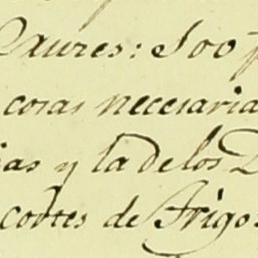 Raures: Son p
cosas necesaria
ias y la de los D
cortes de Arigo.